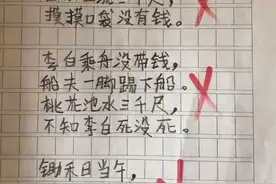 摸摸口袋没有钱。
李白乘舟没带钱，
船夫一脚踢下船。
桃花池水三千尺，
不知李白死没死。
锄禾日当午，